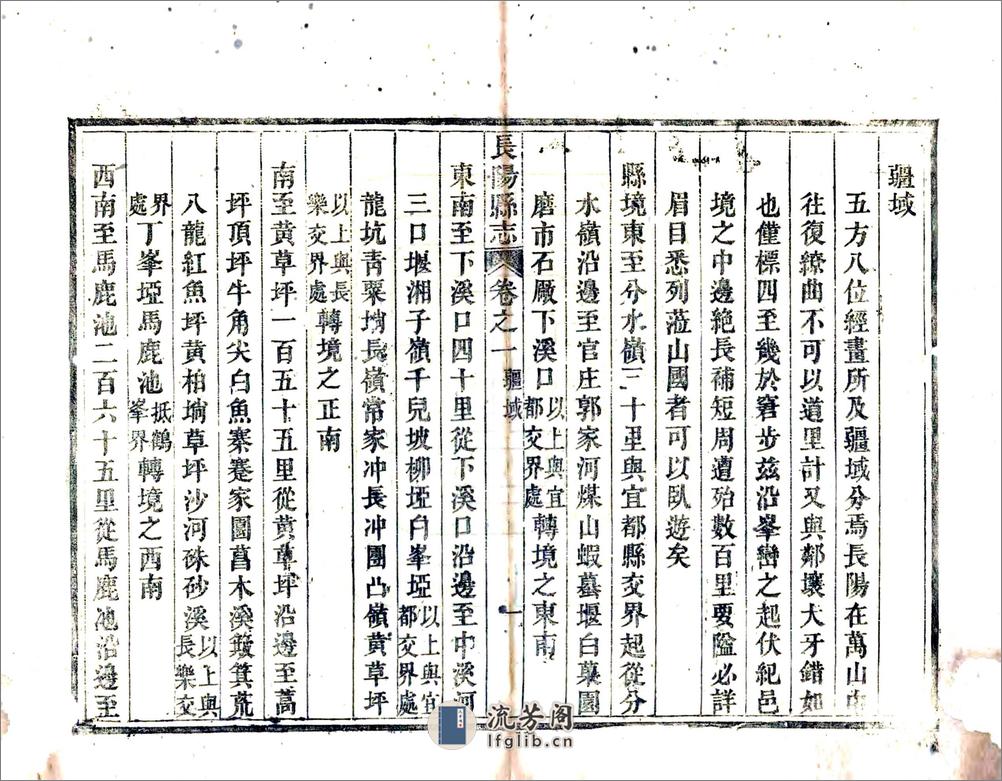 疆域
五方八位經畫所及疆域分焉長陽在萬山中
往復繚曲不可以道里計又與鄰壤犬牙錯如
也僅標四至幾於窘步茲沿峯巒之起伏紀邑
境之中邊絶長補短周遭殆數百里要隘必詳
眉目悉列蒞山國者可以臥遊矣
縣境東至分水嶺三十里與宜都縣交界起從分
水嶺沿邊至官庄郭家河煤山蝦蟇堰白菓園
磨市石厰下溪口以上與宜都交界處轉境之東南
長陽縣志 卷之一 疆域 一
東南至下溪口四十里從下溪口沿邊至中溪河
三口堰湘子嶺千兒坡柳埡白峯埡以上與宜都交界處
龍坑青粟㘵長嶺常家冲長冲團凸嶺黃草坪
以上與長樂交界處轉境之正南
南至黃草坪一百五十五里從黃草坪沿邊至蒿
坪頂坪牛角尖白魚寨蹇家園菖木溪簸箕荒
八龍紅魚坪黃柏㘵草坪沙河硃砂溪以上與長樂交
界處丁峯埡馬鹿池抵鶴峯界轉境之西南
西南至馬鹿池二百六十五里從馬鹿池沿邊至
流芳阁
lfglib.cn